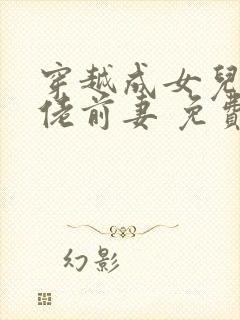 穿越成女兒
佬前妻 免費
幻影